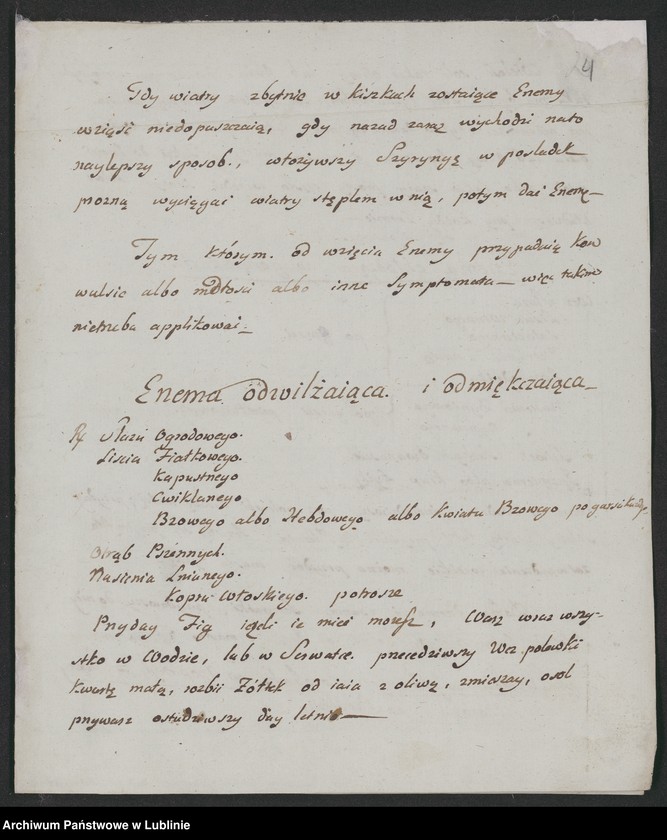 4
Gdy wiatry zbytnie w kiszkach zostaiące Enemy
wziąść niedopuszczaią, gdy nazad zaraz wychodzi na to
naylepszy sposob, włożywszy Szyryngę w posladek
prozną wyciągać wiatry stęplem w nią, potym dać Enemę
Tym którym od wzięcia Enemy przypadaią Kon
wulsie albo mdłosci albo inne Symptomata więc takim
nietrzeba applikować
Enema odwilżaiąca i odmiękczaiąca
Rx Slazu Ogrodowego.
Liscia Fiałkowego.
Kapustnego
Cwiklanego
Bzowego albo Hebdowego albo Kwiatu Bzowego po garsci
Otrąb Pszennych.
Nasienia Lnianego.
Kopru Włoskiego. potrosze
Przyday Fig ieżli ie mieć możesz, Warz wraz wszy-
stko w Wodzie, lub w Serwatce. przecedziwszy Wez polewki
Kwartę małą, rozbii Zółtek od iaia z oliwą, zmieszay, osol
przywarz ostudziwszy day letnie
Archiwum Państwowe w Lublinie